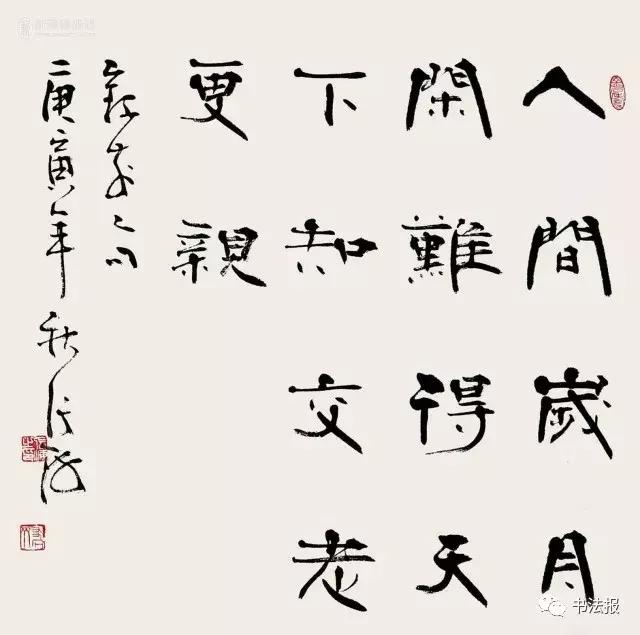 人間歲月
閑難得天
下知交老
更親
庚寅年秋张海
书法报